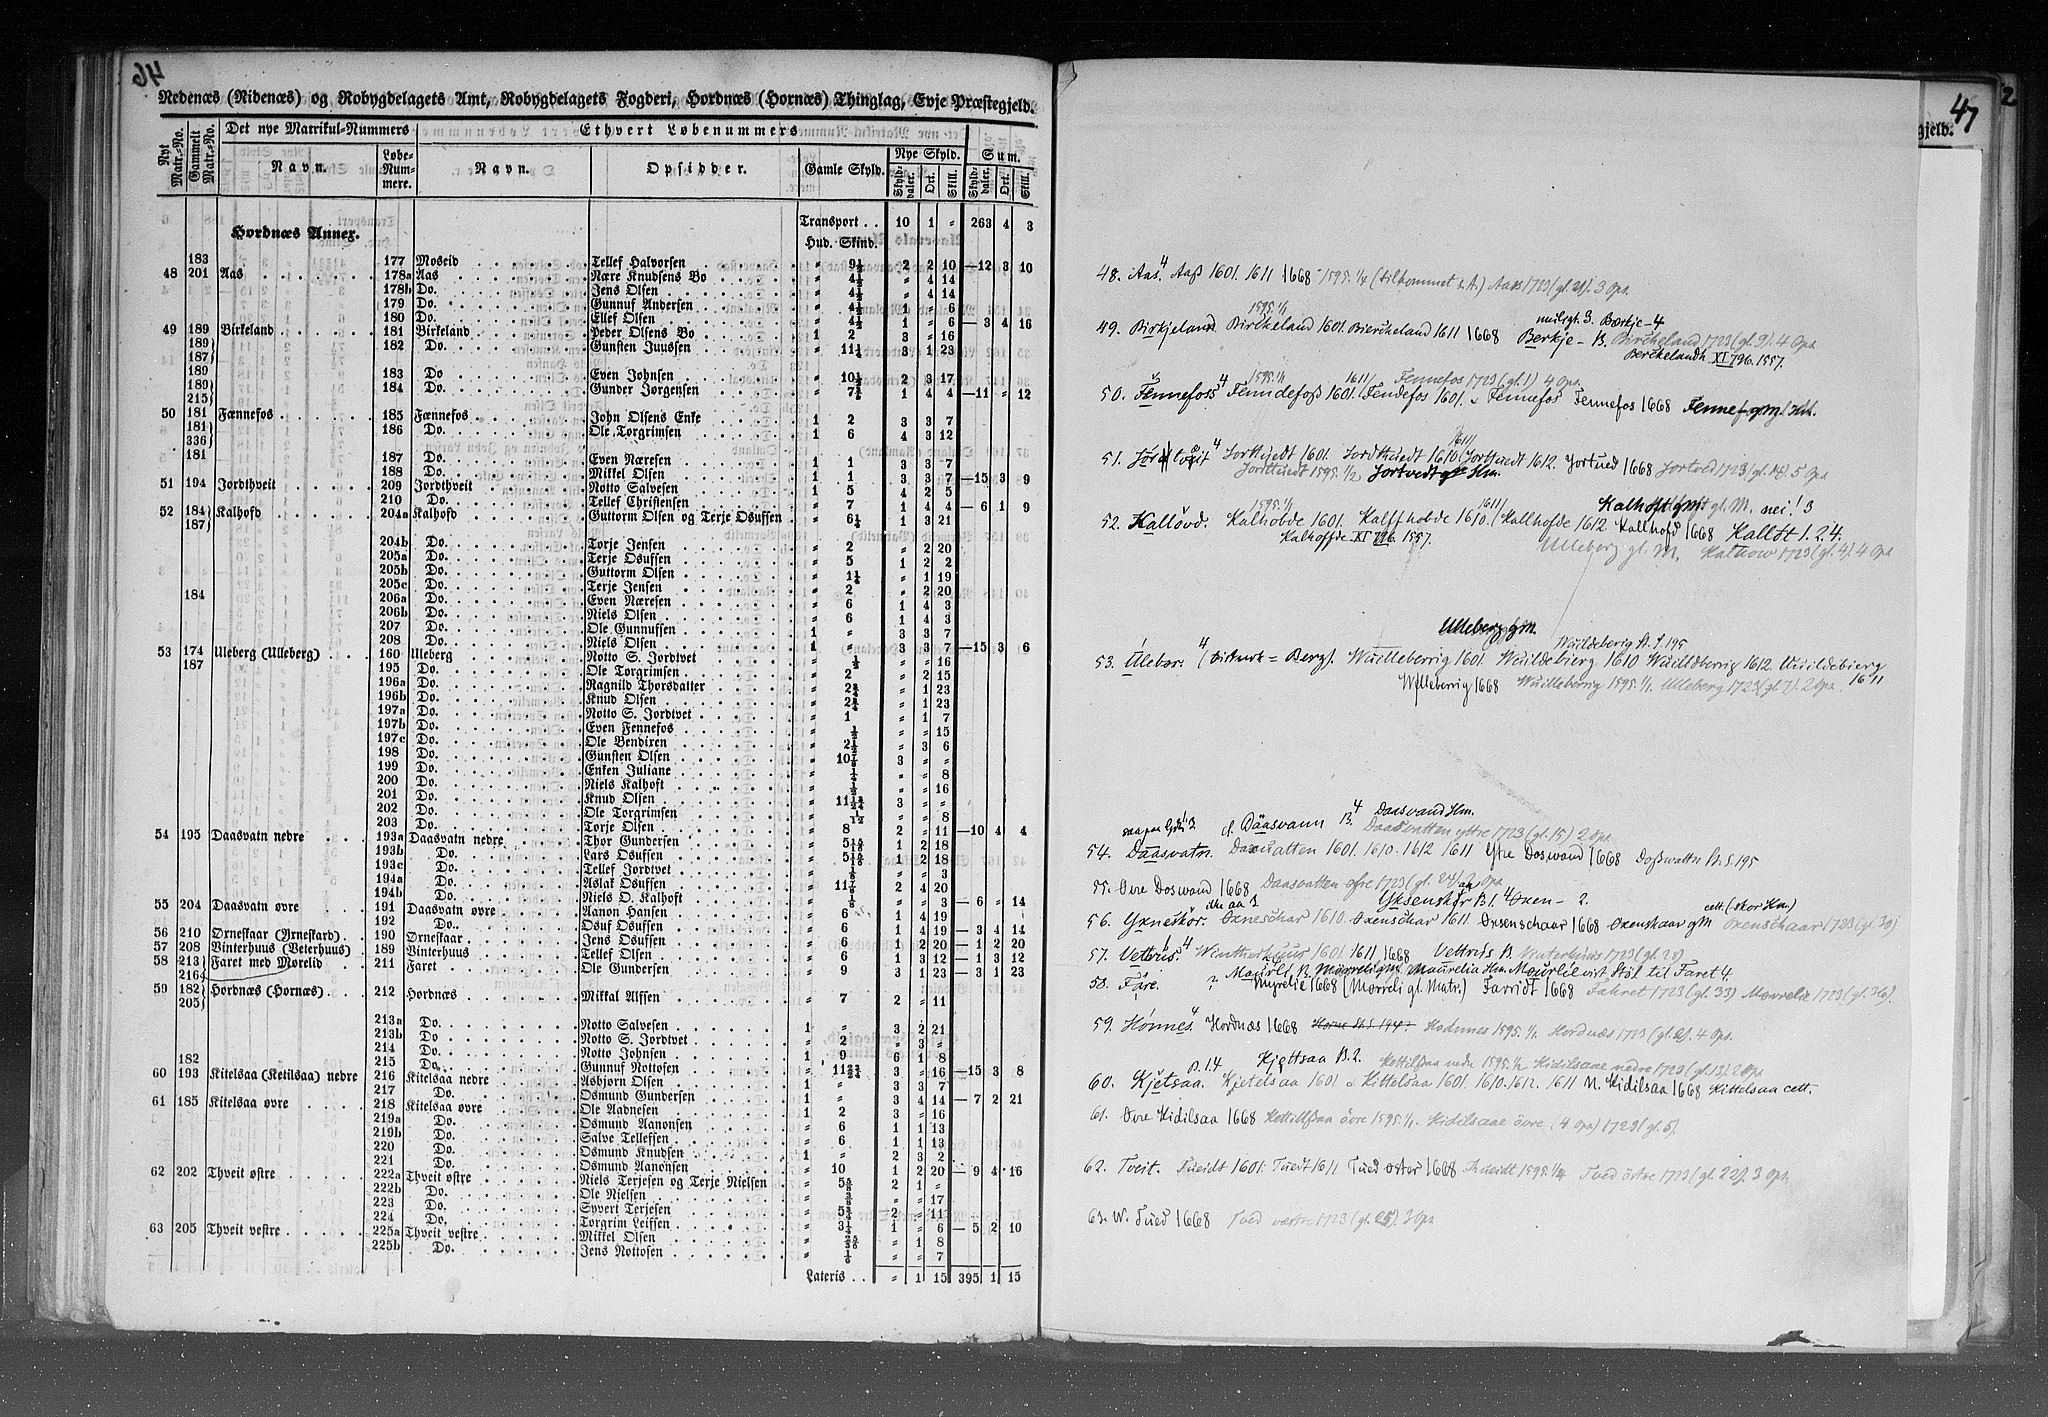 46
Nedenæs (Nidenæs) og Robygdelagets Amt, Robygdelagets Fogderi, Hordnæs (Hornæs) Thinglag, Evje Præstegjeld.
Nyt Matr.-No. Gammelt Matr.-No. Det nye Matrikul-Nummers Ethvert Løbenummers
Navn. Løbe-Nummere. Navn. Opsidder. Gamle Skyld. Nye Skyld. Sum.
Skylddaler. Ort. Skill. Skylddaler. Ort. Skill.
Transport . . 10 1 " 263 4 3
Hordnæs Annex. Hud. Skind.
183 177 Moseid Tellef Halvorsen " 9½ 2 2 10 —12 3 10
48 201 Aas 178a Aas Nære Knudsens Bo " 4½ " 4 14
178b Do. Jens Olsen " 4½ " 4 14
179 Do. Gunnuf Andersen " 4½ 1 " 6
180 Do. Ellef Olsen " 4½ 1 " 6 — 3 4 16
49 189 Birkeland 181 Birkeland Peder Olsens Bo 1 2 3 " 16
189 187 182 Do. Gunsten Juussen " 11½ 3 1 23
189 183 Do Even Johnsen " 10½ 2 3 17
189 215 184 Do. Gunder Jørgensen " 7½ 1 4 4 —11 " 12
50 181 Fænnefos 185 Fænnefos John Olsens Enke 1 2 3 3 7
181 336 186 Do. Ole Torgrimsen 1 6 4 3 12
181 187 Do. Even Næresen 1 1 3 3 7
188 Do. Mikkel Olsen 1 1 3 3 7 —15 3 9
51 194 Jordthveit 209 Jordthveit Notto Salvesen 1 5 4 2 5
210 Do. Tellef Christensen " 7 1 4 4 — 6 1 9
52 184 187 Kalhofd 204a Kalhofd Guttorm Olsen og Terje Osuffen " 6½ 1 3 21
204b Do. Torje Jensen " 2 " 2 20
205a Do. Terje Osuffen " 5 1 2 2
205b Do. Guttorm Olsen " 1¼ " 1 19
205c Do. Terje Jensen " 2 " 2 20
184 206a Do. Even Næresen " 6 1 4 3
206b Do. Niels Olsen " 6 1 4 3
207 Do. Ole Gunnuffen 1 " 3 3 7
208 Do. Niels Olsen 1 " 3 3 7 —15 3 6
53 174 Uleberg (Ulleberg) 160 Uleberg Notto S. Jordtvet " ½ " " 16
187 195 Do. Ole Torgrimsen " 2 " 2 15
196a Do. Ragnild Thorsdatter " 2¾ " 1 23
196b Do. Knud Olsen " 2¾ " 1 23
197a Do. Notto S. Jordtvet " 1 " 1 7
197b Do. Even Fennefos " ½ " " 15
197c Do. Ole Bendixen " 2½ " 3 6
198 Do. Gunsten Olsen " 10⅞ 3 " "
199 Do. Enken Juliane " ¼ " " 8
200 Do. Niels Kalhoft " ½ " " 16
201 Do. Knud Olsen " 11¾ 3 " "
202 Do. Ole Torgrimsen " " " 8
203 Do. Torje Olsen " 8 2 " 11 —10 4 4
54 195 Daasvatn nedre 193a Daasvatn nedre Thor Gundersen " 5⅝ 1 2 18
193b Do. Lars Osuffen " 5⅝ 1 2 18
193c Do. Tellef Jordtvet " " " 3
194a Do. Aslak Osuffen " 11⅞ 2 4 20
194b Do. Niels O. Kalhoft " ⅛ " " 3 — 6 " 14
55 204 Daasvatn øvre 191 Daasvatn øvre Aanon Hansen " 6 1 4 19
192 Do. Osuf Osuffen " 6 1 4 19 — 3 4 14
56 210 Ørnefkaar (Yrnefkard) 190 Ørnefkaar Jens Osuffen " 6 1 2 20 — 1 2 20
57 208 Vinterhuus (Veterhuus) 189 Vinterhuus Tellef Olsen " 6 1 3 12 — 1 3 12
58 213 216 Faret med Morelid 211 Faret Ole Gundersen " 9 3 1 23 — 3 1 23
59 182 205 Hordnæs (Hornæs) 212 Hordnæs Mikkal Alfsen " 7 2 " 11
213a Do. Notto Salvesen 1 " 3 2 21
213b Do. Notto S. Jordtvet " 2 " 3 "
214 Do Notto Johnsen 1 9 6 1 8
182 215 Do. Gunnuf Nottosen " 11¾ 3 " 16 —15 3 8
60 193 Kitelsaa (Ketilsaa) nedre 216 Kitelsaa nedre Asbjørn Olsen 1 " 3 3 7
217 Do. Osmund Gundersen 1 " 3 4 14 — 7 2 21
61 185 Kitelsaa øvre 218 Kitelsaa øvre Ole Aadnesen 1 2 3 " 16
219a Do. Osmund Aanonsen " 6 1 1 13
219b Do. Salve Tellefsen " 6 1 1 13
220 Do. Osmund Knudsen 1 " 2 3 2
221 Do. Osmund Aanonsen " 10 1 2 20 — 9 4 16
62 202 Thveit østre 222a Thveit østre Niels Terjesen og Terje Nielsen " 5⅝ 2 1 "
222b Do. Ole Nielsen " ⅜ " " 17
223 Do. Syvert Terjesen " 5¾ 2 " 11
224 Do. Torgrim Leiffen " 3¼ 1 " 6 — 5 2 10
63 205 Thveit vestre 225a Thveit vestre Mikkel Olsen " " 1 8
225b Do. Jens Nottosen " ⅙ " " 7
Lateris . . " 1 15 395 1 15
47
2
gjeld.
48. Aas 4 Aaß 1601. 1611 1668 1595. 1/4 (tilkommet s. A.) Aas 1723 (gl. 21). 3 Ops.
1595. 1/1 muligt. 3. Bærkje - 4
49. Birkjeland. Birckeland 1601. Bierckeland 1611 1668 Berkje - B. Birckeland 1723 (gl. 9). 4 Ops
Berckelandh XI 796. 1557.
1595. 1/1 1611 Fennefos 1723 (gl. 1) 4 Ops.
50. Fennefoss 4 Fenndefoß 1601. Fendefos 1601. Fennefos Fennefos 1668 Fennef- gM. Hm.
51. Jortveit 4 Jorthuedt 1601. Jordthuedt 1610 (1611) Jortthuedt 1612. Jortued 1668 Jortved 1723 (gl. 14) 5 Ops
Jordtuedt 1595. 1/2 Jortvedt Hm.
1595. 1/1 1611 Kalhoft gM. nei! 3
52. Kalløvd. Kalhobde 1601. Kalffhobde 1610. Kallhofde 1612 Kallhofd 1668 Kalløt 1. 2. 4.
Kalhoffde XI 796. 1557. Ulleberg gl. M. Kalhow 1723 (gl. 4) 4 Ops
Ulleberg gM.
Wuildeberg St. S. 195
53. Ulebær. 4 (Diskurs = Berg). Wuelleberrig 1601. Wuildebierg 1610 Wuilldberrig 1612 Uuildebierg 1611
Wylleberrig 1668 Wuilleberrig 1595. 1/1. Ulleberg 1723 (gl. 7). 2 Ops.
d. Dåasvann B. 4 Daasvand Hm.
Daasvatten yttre 1723 (gl. 15) 2 Ops.
54. Daasvatn. Dauatten 1601. 1610. 1612 1611 Ytre Doswand 1668 Doßwattn St. S. 195
55. Øvre Doswand 1668 Daasvatten øfre 1723 (gl. 24) 2 Ops
ikke aa 3 Yksenskår B 1. 4 Oxen - 2. cett. (skor Hm.)
56. Yxneskor. Oxneschar 1610. Oxenschar 1611 Oxsenschaar 1668 Oxenskaar gM Oxenschaar 1723 (gl. 30)
57. Vettrus 4 Winttherhuur 1601. 1611, 1668 Vettrüs B. Vinterhuus 1723 (gl. 28)
Maurli B. Morreli gM. Maurelia Hm. Maurlie vist Støl til Faret 4.
58. Fare. ? Myrelie 1668 (Morreli gl. Matr.) Farridt 1668 Fahret 1723 (gl. 33) Morrelie 1723 (gl. 36).
59. Honnes. 4 Hordnæs 1668 Horne St. S. 194. Hodnnes 1595. 1/1. Hordnæs 1723 (gl. 2). 4 Ops.
B. 1.4 Kjettsaa B. 2. Kettilßaa nede 1595. 1/2 Kidilsaae nedre 1723 (gl. 13) 2 Ops
60. Kjetsaa. Kjetelsaa 1601 & Kittelsaa 1601. 1610. 1612. 1611 N. Kidilsaa 1668 Kittelsaa cett.
61. Øvre Kidilsaa 1668 Kettillßaa övre 1595. 1/1. Kidilsaae övre (4 Ops) 1723 (gl. 5).
62. Tveit. Tueidt 1601. Tuedt 1611 Tued øster 1668 Thueidt 1595. 1/4 Tved östre 1723 (gl. 22). 3 Ops.
63. W. Tued 1668 Tved vestre 1723 (gl. 25). 3 Ops